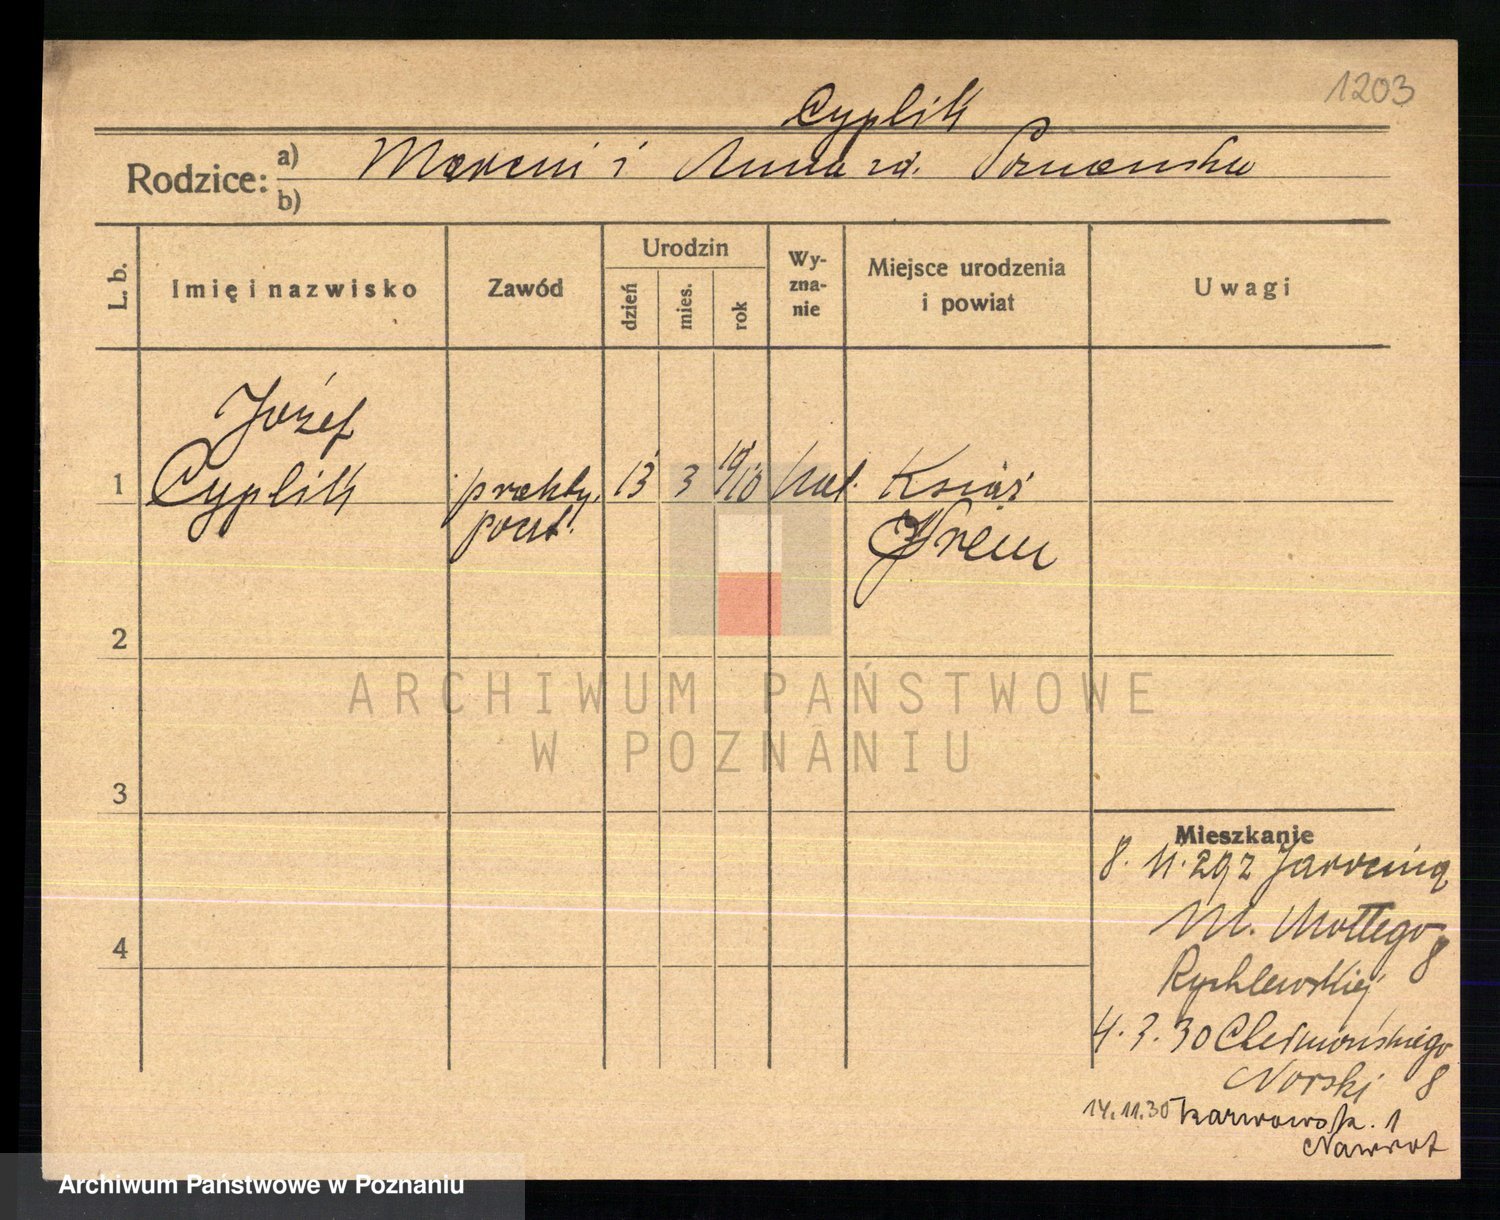 1203
Cyplik
Rodzice: a) Marcin i Anna zd. Poznańska
b)
L. b.
Imię i nazwisko
Zawód
Urodzin
dzień
mies.
rok
Wy-
zna-
nie
Miejsce urodzenia
i powiat
Uwagi
Józef
1 Cyplik prakty. 13 3 1910 kat. Książ
poczt. Śrem
2
ARCHIWUM PAŃSTWOWE
W POZNANIU
3
Mieszkanie
8. 11. 29 z Jarocina
M. Mottego 8
4
Rychlewskiej
4. 3. 30 Chełmońskiego 8
Norski
14.11.30 Karwowsk. 1
Nawrot
Archiwum Państwowe w Poznaniu